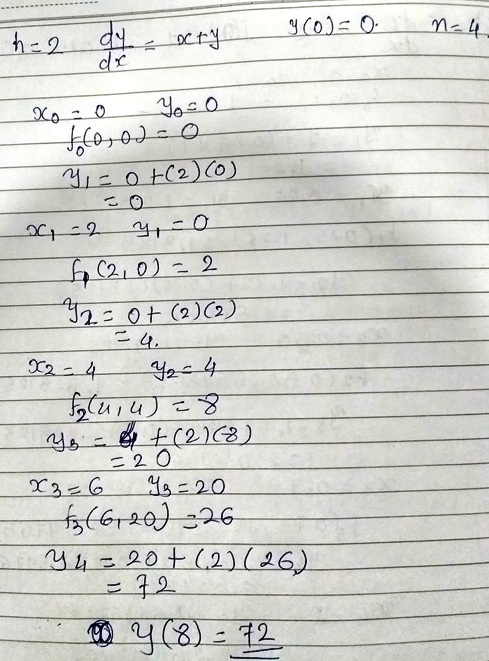 h=2 dy/dx = x+y y(0)=0. n=4
x0 = 0 y0=0
f0(0,0) = 0
y1 = 0+(2)(0)
= 0
x1 = 2 y1 = 0
f1(2,0) = 2
y2 = 0+(2)(2)
= 4.
x2 = 4 y2 = 4
f2(4,4) = 8
y3 = 4 +(2)(8)
= 20
x3=6 y3=20
f3(6,20) = 26
y4 = 20+(2)(26)
= 72
y(8) = 72